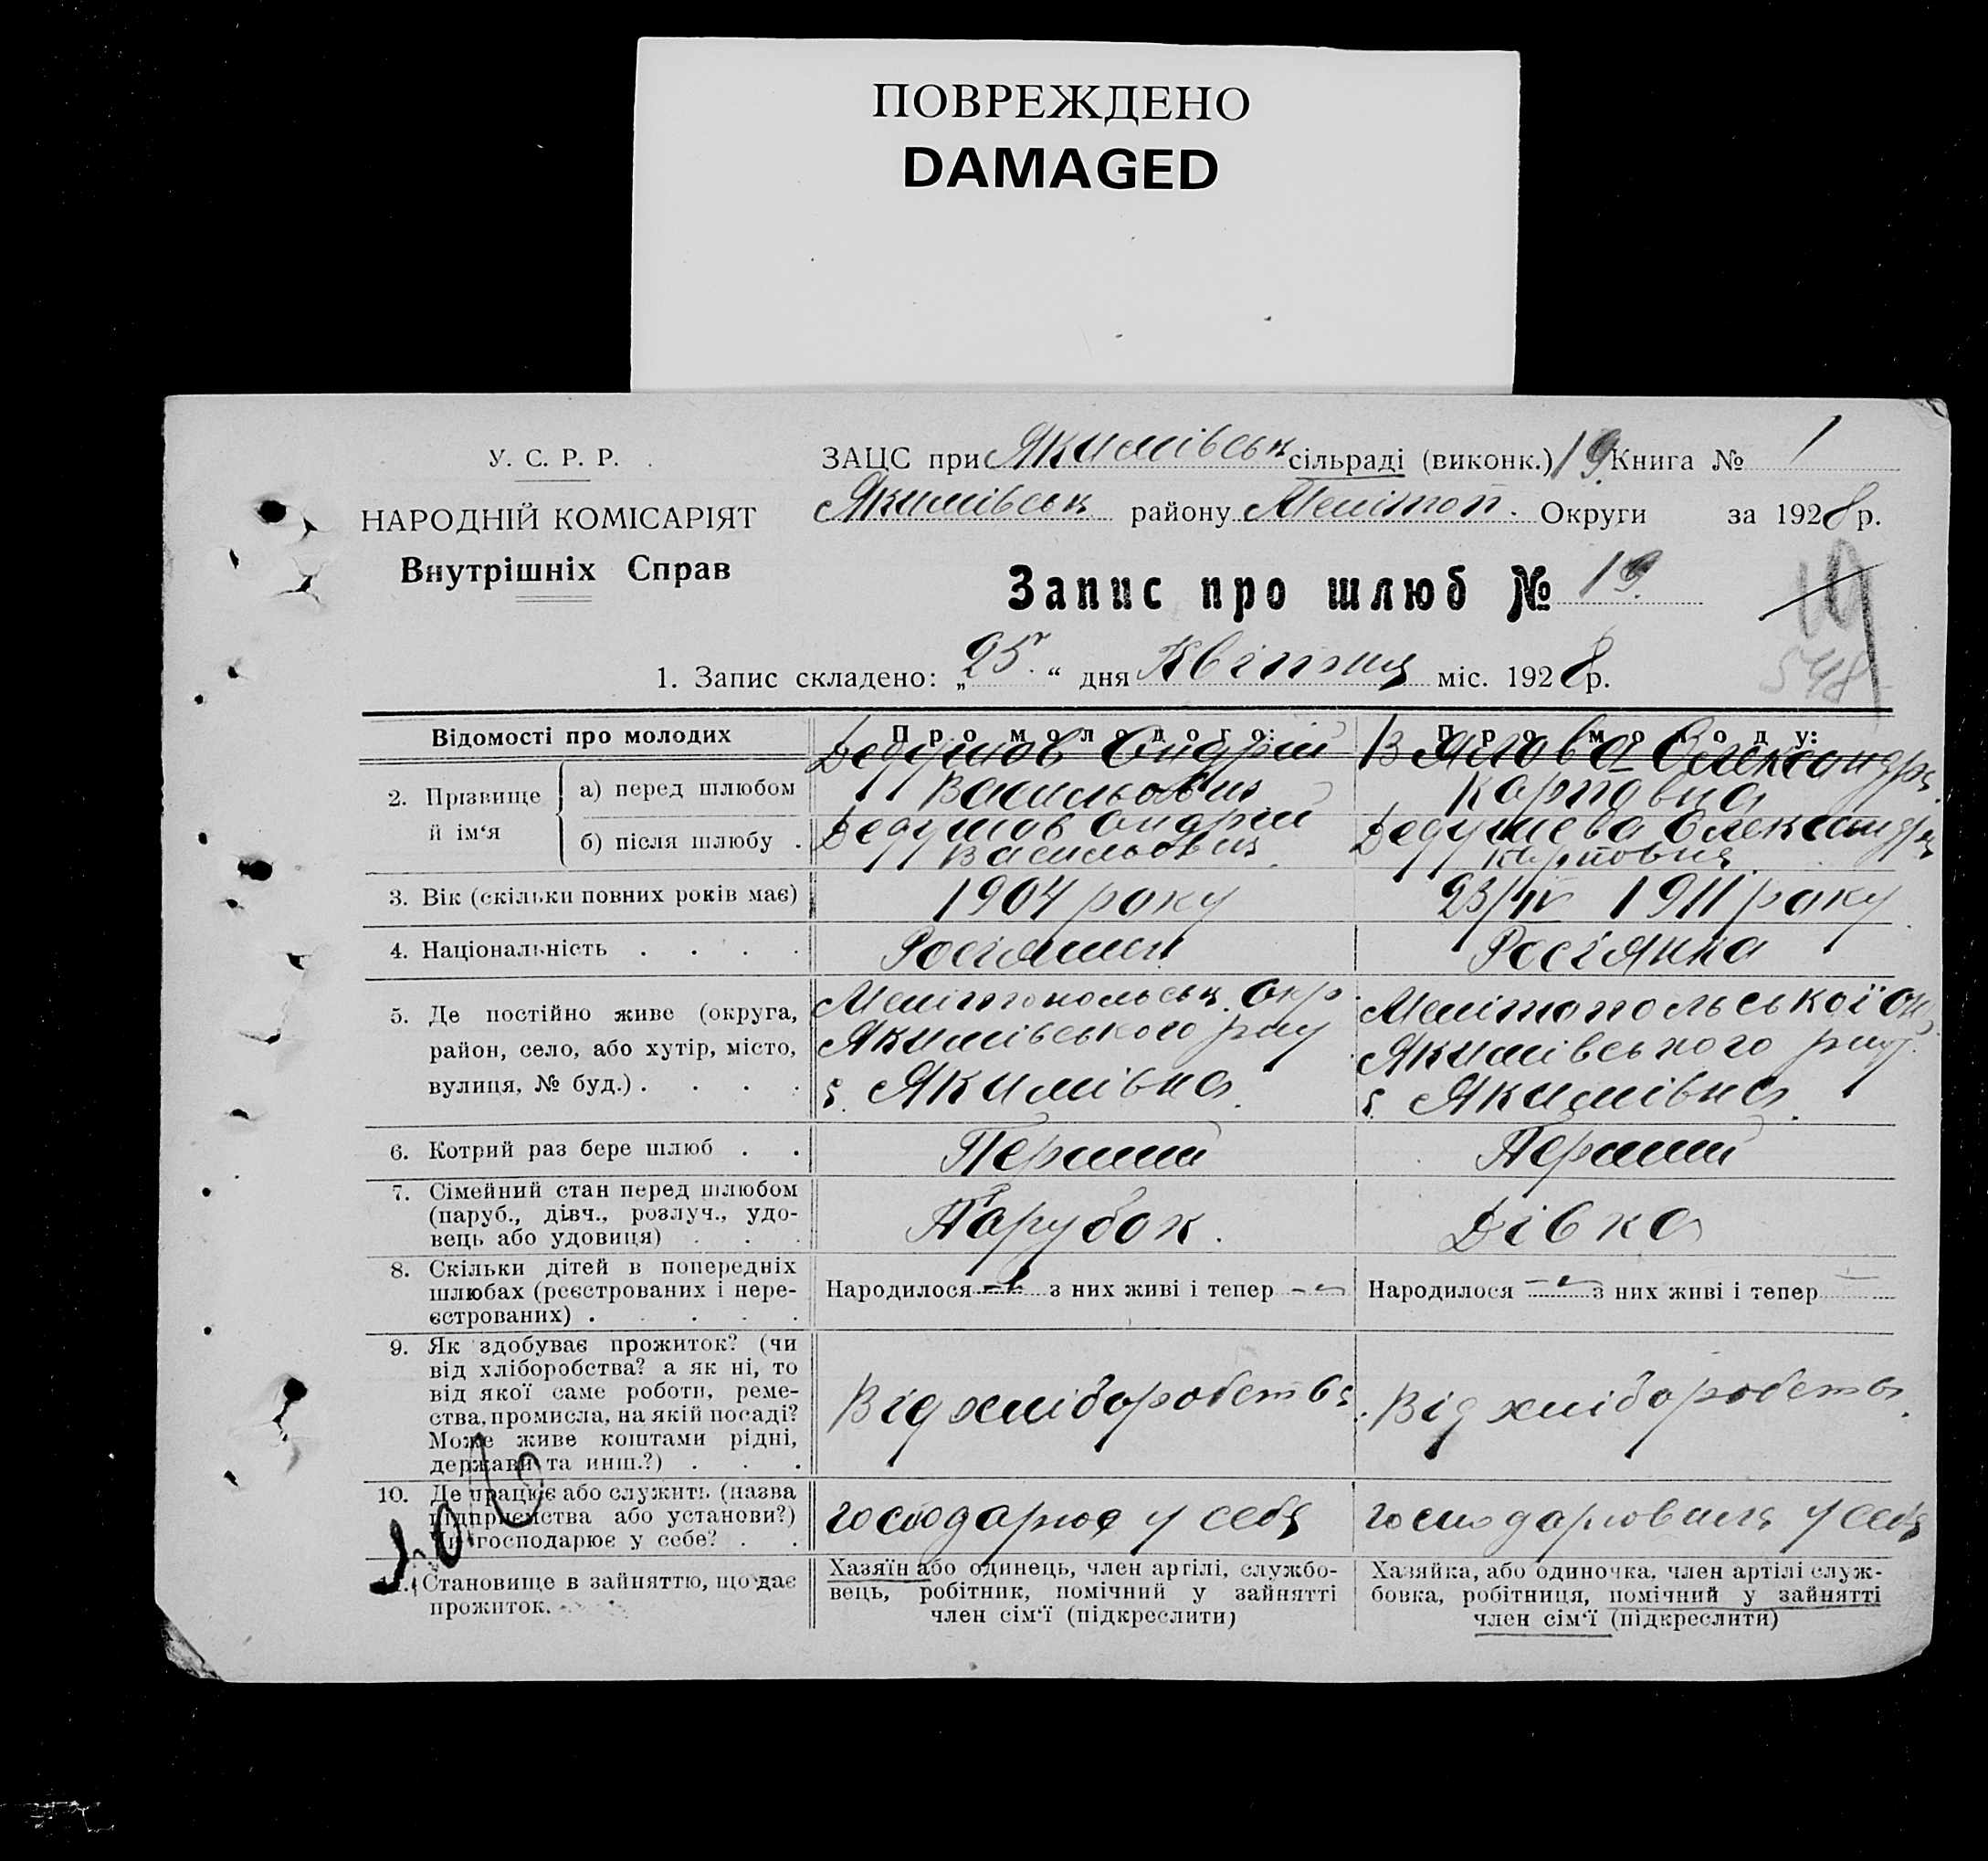 ПОВРЕЖДЕНО
DAMAGED
У. С. Р. Р.
НАРОДНІЙ КОМІСАРІЯТ
Внутрішніх Справ
ЗАЦС при Якимівськ сільраді (виконк.) 19. Книга № 1
Якимівськ району Мелітоп. Округи за 1928 р.
Запис про шлюб № 19.
19
548
1. Запис складено: „25“ дня Квітня міс. 1928 р.
Відомості про молодих
Про молодого:
Про молоду:
2. Прізвище й ім‘я
а) перед шлюбом
Дедушов Андрій
Васильович
Олександра
Карповна
б) після шлюбу .
Дедушов Андрій
Васильович
Дедушева Олександра
Карповна
3. Вік (скільки повних років має)
1904 року
23/IV 1911 року
4. Національність . . . .
Росіянин
Росіянка
5. Де постійно живе (округа,
район, село, або хутір, місто,
вулиця, № буд.) . . . .
Мелітопольськ. Окр.
Якимівського р-ну
с. Якимівка
Мелітопольської Ок
Якимівського р-ну
с. Якимівка.
6. Котрий раз бере шлюб . .
Перший
Перший
7. Сімейний стан перед шлюбом
(паруб., дівч., розлуч., удо-
вець або удовиця) . . .
Парубок.
Дівка
8. Скільки дітей в попередніх
шлюбах (реєстрованих і нере-
єстрованих) . . . . .
Народилося — з них живі і тепер —
Народилося — з них живі і тепер —
9. Як здобуває прожиток? (чи
від хліборобства? а як ні, то
від якої саме роботи, реме-
ства, промисла, на якій посаді?
Може живе коштами рідні,
держави та инш.?) . . .
Від хліборобства
Від хліборобства.
10. Де працює або служить (назва
підприємства або установи?)
чи господарює у себе? . .
господарює у себе
у себе
11. Становище в зайняттю, що дає
прожиток.
Хазяїн або одинець, член артілі, службо-
вець, робітник, помічний у зайнятті
член сім‘ї (підкреслити)
Хазяйка, або одиночка, член артілі служ-
бовка, робітниця, помічний у зайнятті
член сім‘ї (підкреслити)